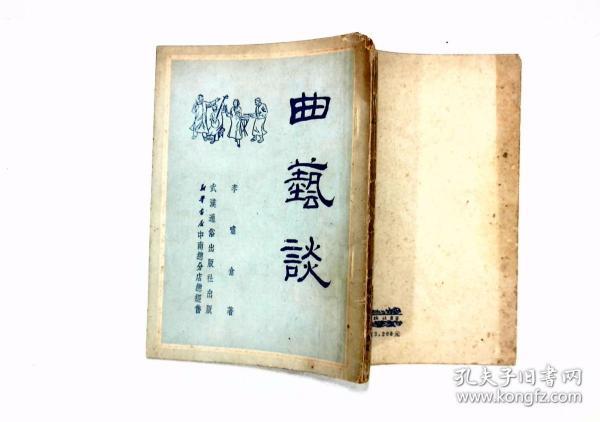 曲藝談
李嘯倉著
武漢通俗出版社出版
新華書店中南總分店總經售
孔夫子旧书网
www.kongfz.com